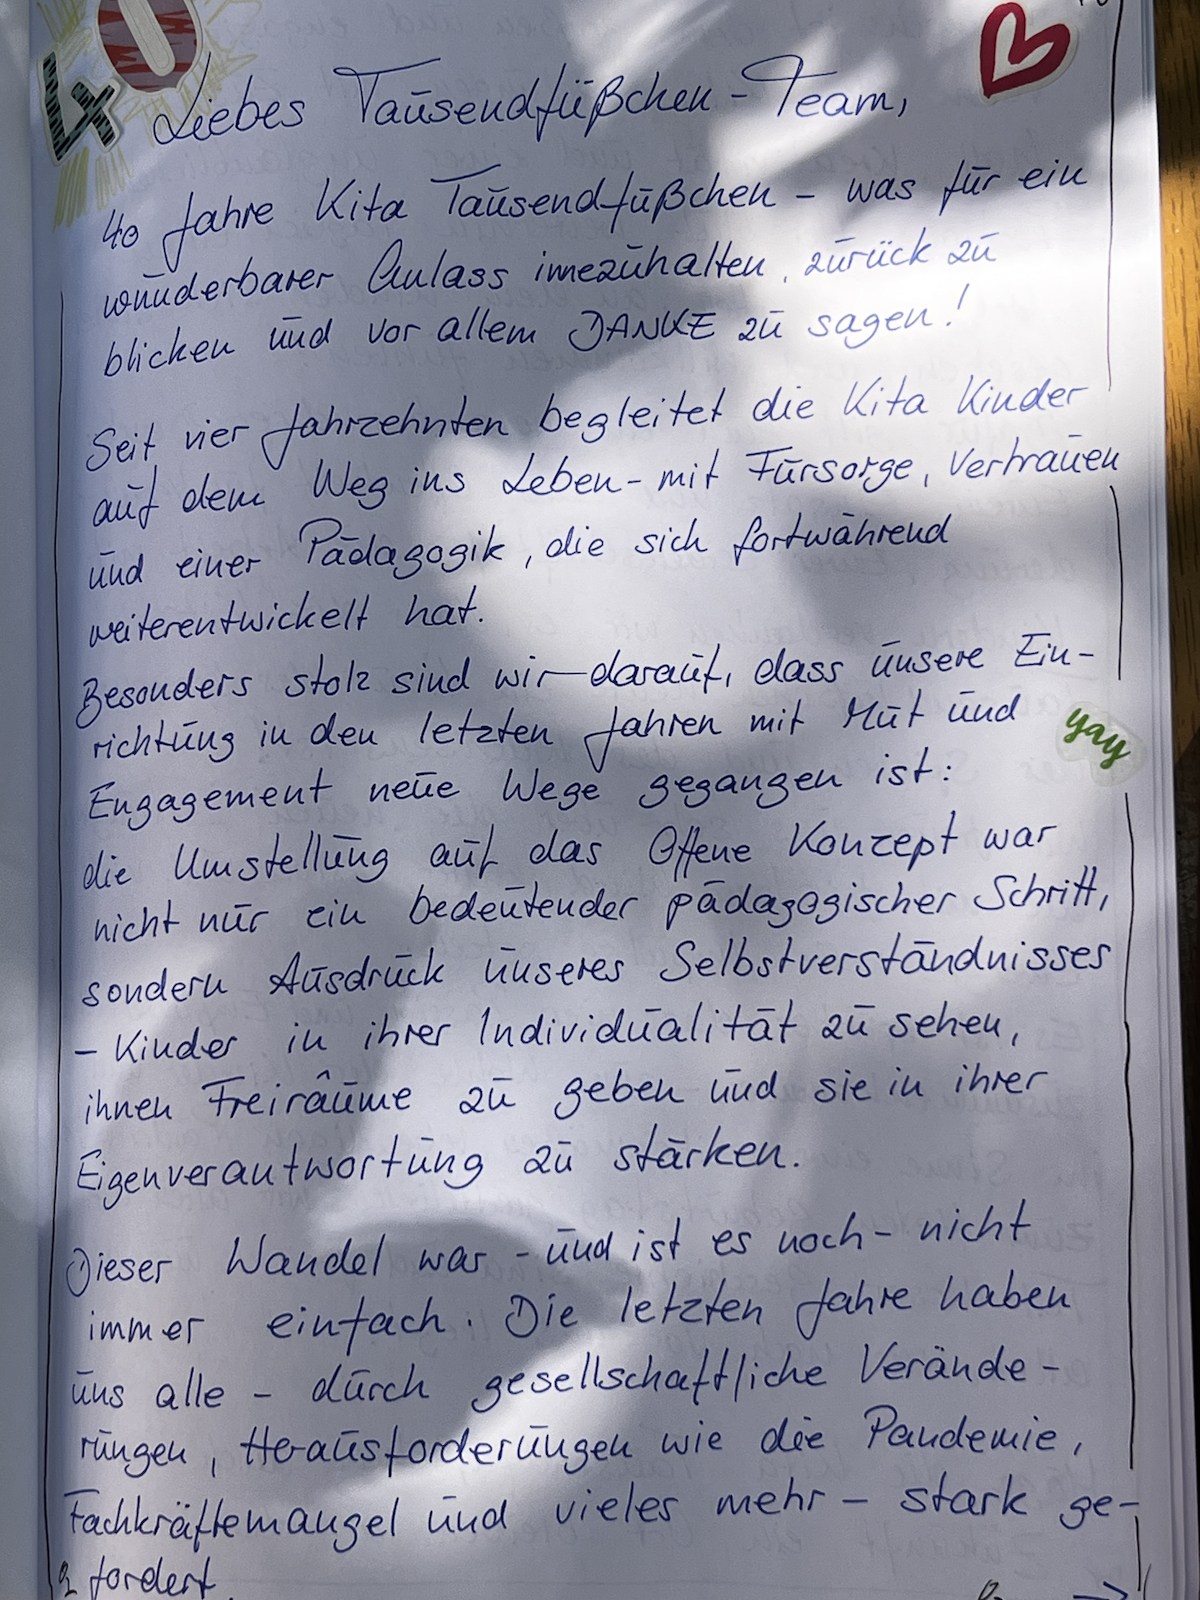 40
Liebes Tausendfüßchen-Team,
40 Jahre Kita Tausendfüßchen - was für ein
wunderbarer Anlass innezuhalten, zurück zu
blicken und vor allem DANKE zu sagen!
Seit vier Jahrzehnten begleitet die Kita Kinder
auf dem Weg ins Leben - mit Fürsorge, Vertrauen
und einer Pädagogik, die sich fortwährend
weiterentwickelt hat.
Besonders stolz sind wir darauf, dass unsere Ein-
richtung in den letzten Jahren mit Mut und
yay
Engagement neue Wege gegangen ist:
die Umstellung auf das Offene Konzept war
nicht nur ein bedeutender pädagogischer Schritt,
sondern Ausdruck unseres Selbstverständnisses
- Kinder in ihrer Individualität zu sehen,
ihnen Freiräume zu geben und sie in ihrer
Eigenverantwortung zu stärken.
Dieser Wandel war - und ist es noch - nicht
immer einfach. Die letzten Jahre haben
uns alle - durch gesellschaftliche Verände-
rungen, Herausforderungen wie die Pandemie,
Fachkräftemangel und vieles mehr - stark ge-
fordert.